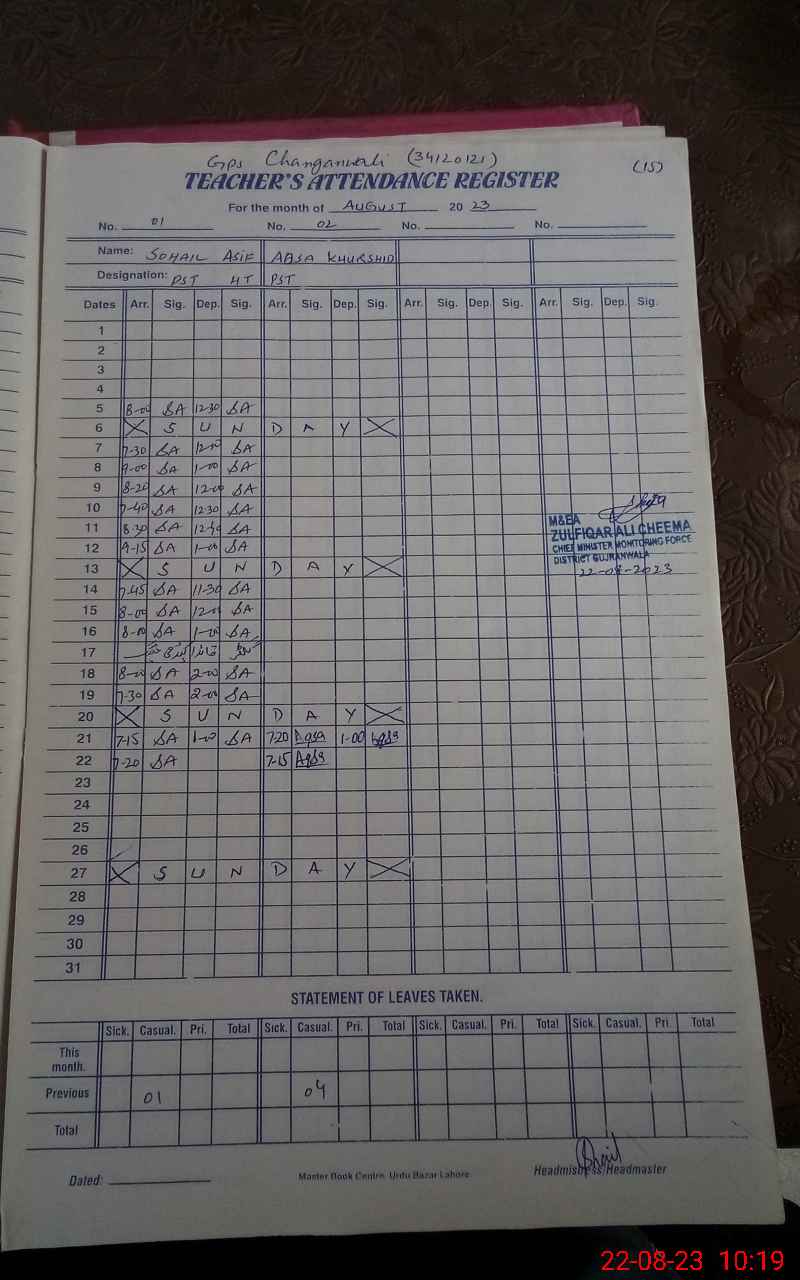 GPS Changanwali (34120121)
(15)
TEACHER'S ATTENDANCE REGISTER
For the month of AUGUST 2023
No. 01 No. 02 No. No.
Name: SOHAIL ASIF AQSA KHURSHID
Designation: PST HT PST
Dates Arr. Sig. Dep. Sig. Arr. Sig. Dep. Sig. Arr. Sig. Dep. Sig. Arr. Sig. Dep. Sig.
1
2
3
4
5 8-00 SA 12-30 SA
6 S U N D A Y
7 7-30 SA 12-00 SA
8 9-00 SA 1-00 SA
9 8-20 SA 12-00 SA
10 7-40 SA 12-30 SA
11 8-30 SA SA
12 9-15 SA 1-00 SA
13 S U N D A Y
14 7-45 SA 11-30 SA
15 8-00 SA 12-00 SA
16 8-00 SA 1-00 SA
17
18 8-00 SA 2-00 SA
19 7-30 SA 2-00 SA
20 S U N D A Y
21 7-15 SA 1-00 SA 7-20 Aqsa 1-00 Aqsa
22 7-20 SA 7-15 Aqsa
23
24
25
26
27 S U N D A Y
28
29
30
31
M&EA
ZULFIQAR ALI CHEEMA
CHIEF MINISTER MONITORING FORCE
DISTRICT GUJRANWALA
22-08-2023
STATEMENT OF LEAVES TAKEN.
Sick. Casual. Pri. Total Sick. Casual. Pri. Total Sick. Casual. Pri. Total Sick. Casual. Pri. Total
This month.
Previous 01 04
Total
Dated:
Master Book Centre, Urdu Bazar Lahore
Headmistress/Headmaster
22-08-23 10:19